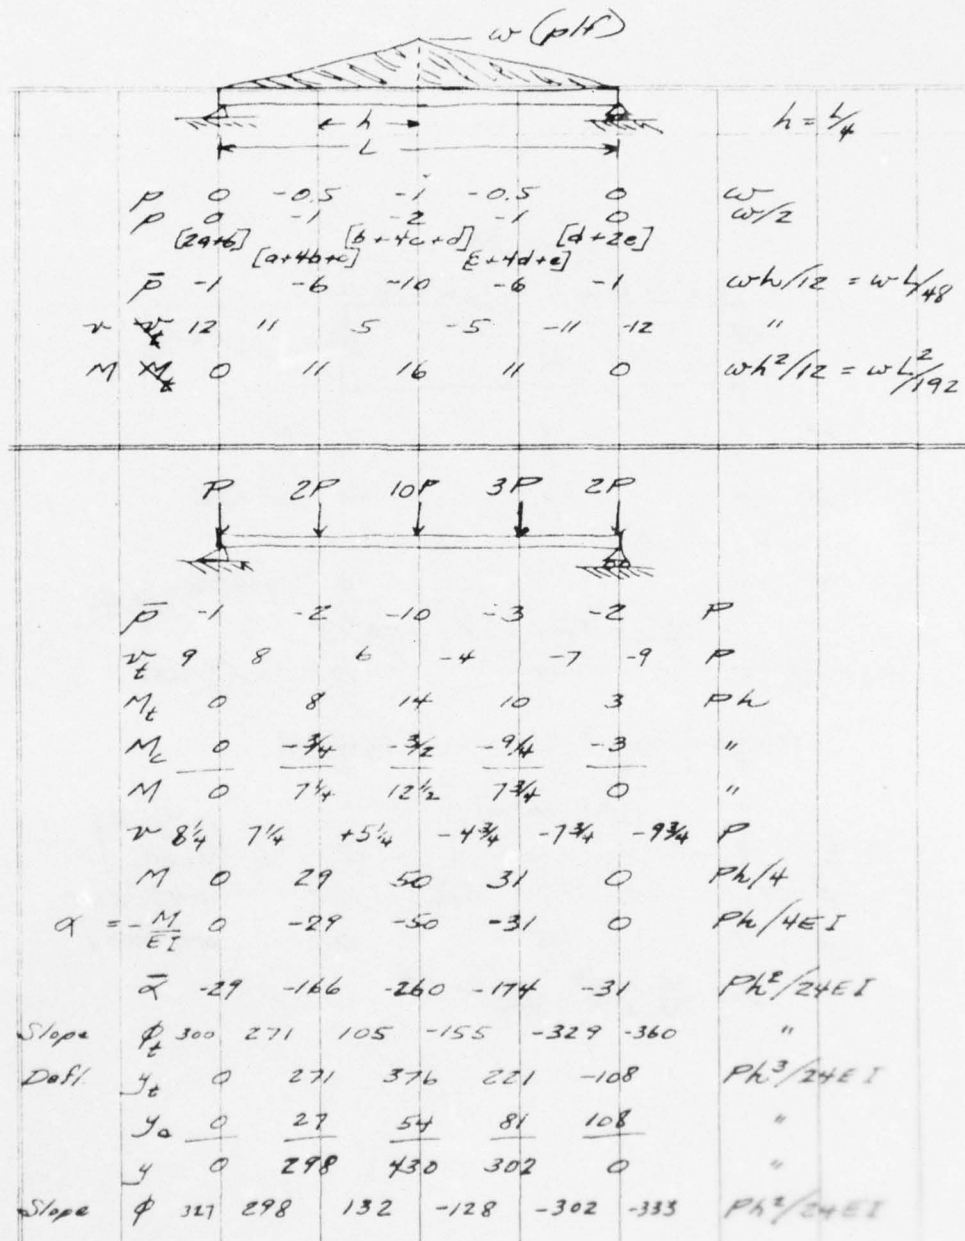 w (plf)
h
h = L/4
L
p 0 -0.5 -1 -0.5 0 w
p 0 -1 -2 -1 0 w/2
[2a+b] [b+4c+d] [d+2e]
[a+4b+c] [c+4d+e]
p̄ -1 -6 -10 -6 -1 wh/12 = wL/48
v 12 11 5 -5 -11 -12 "
M 0 11 16 11 0 wh²/12 = wL²/192
P 2P 10P 3P 2P
p̄ -1 -2 -10 -3 -2 P
v_t 9 8 6 -4 -7 -9 P
M_t 0 8 14 10 3 Ph
M_c 0 -3/4 -3/2 -9/4 -3 "
M 0 7 1/4 12 1/2 7 3/4 0 "
v 8 1/4 7 1/4 +5 1/4 -4 3/4 -7 3/4 -9 3/4 P
M 0 29 50 31 0 Ph/4
α = -M/EI 0 -29 -50 -31 0 Ph/4EI
ᾱ -29 -166 -260 -174 -31 Ph²/24EI
Slope φ_t 300 271 105 -155 -329 -360 "
Defl. y_t 0 271 376 221 -108 Ph³/24EI
y_a 0 27 54 81 108 "
y 0 298 430 302 0 "
Slope φ 327 298 132 -128 -302 -333 Ph²/24EI